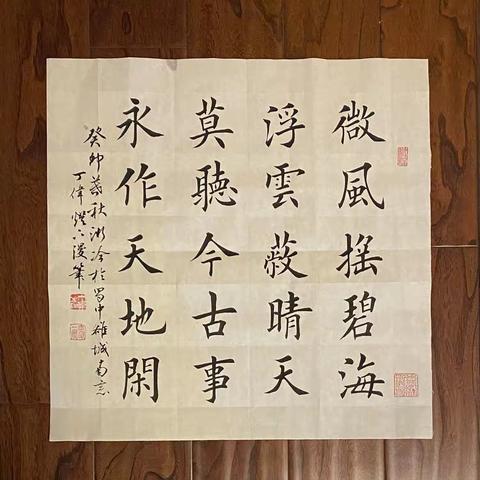 微風搖碧海
浮雲蔽晴天
莫聽今古事
永作天地閑
癸卯暮秋渐冷於蜀中雄城南意
丁偉燈下漫筆